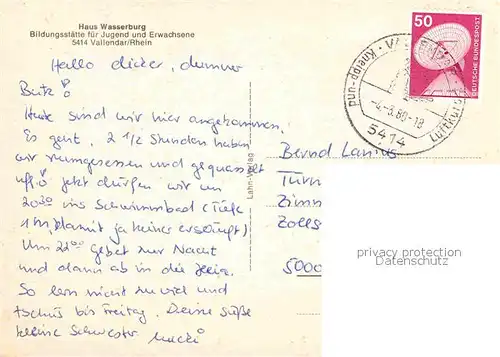 Haus Wasserburg
Bildungsstätte für Jugend und Erwachsene
5414 Vallendar/Rhein
Hallo dicker, dummer
Heute sind wir hier angekommen.
Es geht, 2 1/2 Stunden haben
wir rumgesessen und gequasselt
uff! Jetzt dürfen wir um
20³⁰ ins Schwimmbad (Tiefe
1 m, damit ja keiner ersäuft)
Um 22⁰⁰ Gebet zur Nacht
und dann ab in die Heia.
So lern nicht zu viel und
tschüß bis Freitag. Deine süße
kleine Schwester
Lahn-Verlag
50
DEUTSCHE BUNDESPOST
Kneipp-und
Luftkur
-4.-3.80-18
5414
Bernd
Zimm
Zolls
5000
privacy protection
Datenschutz